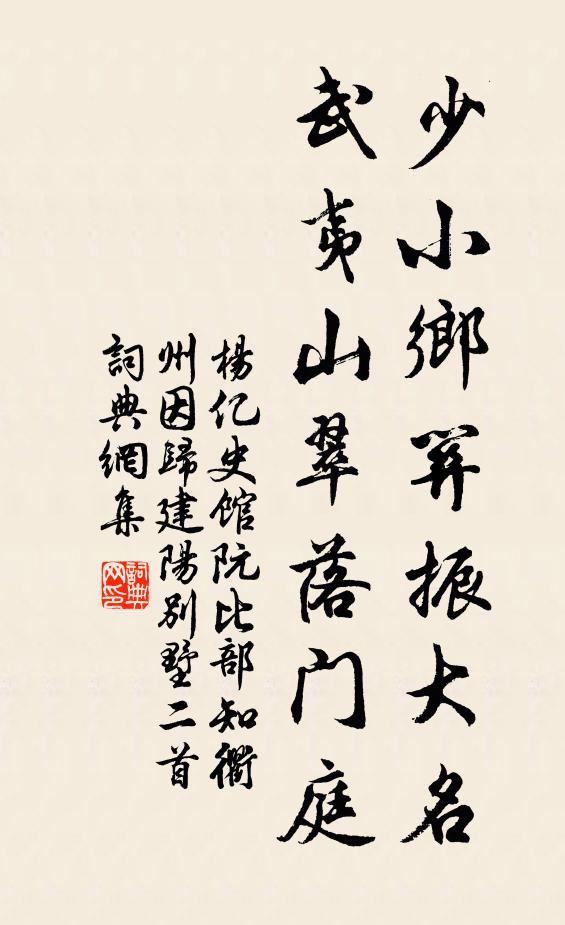 少小鄉閭振大名
武夷山翠落門庭
楊億史館阮比部知衢
州因歸建陽別墅二首
詞典網集
詞典
网印